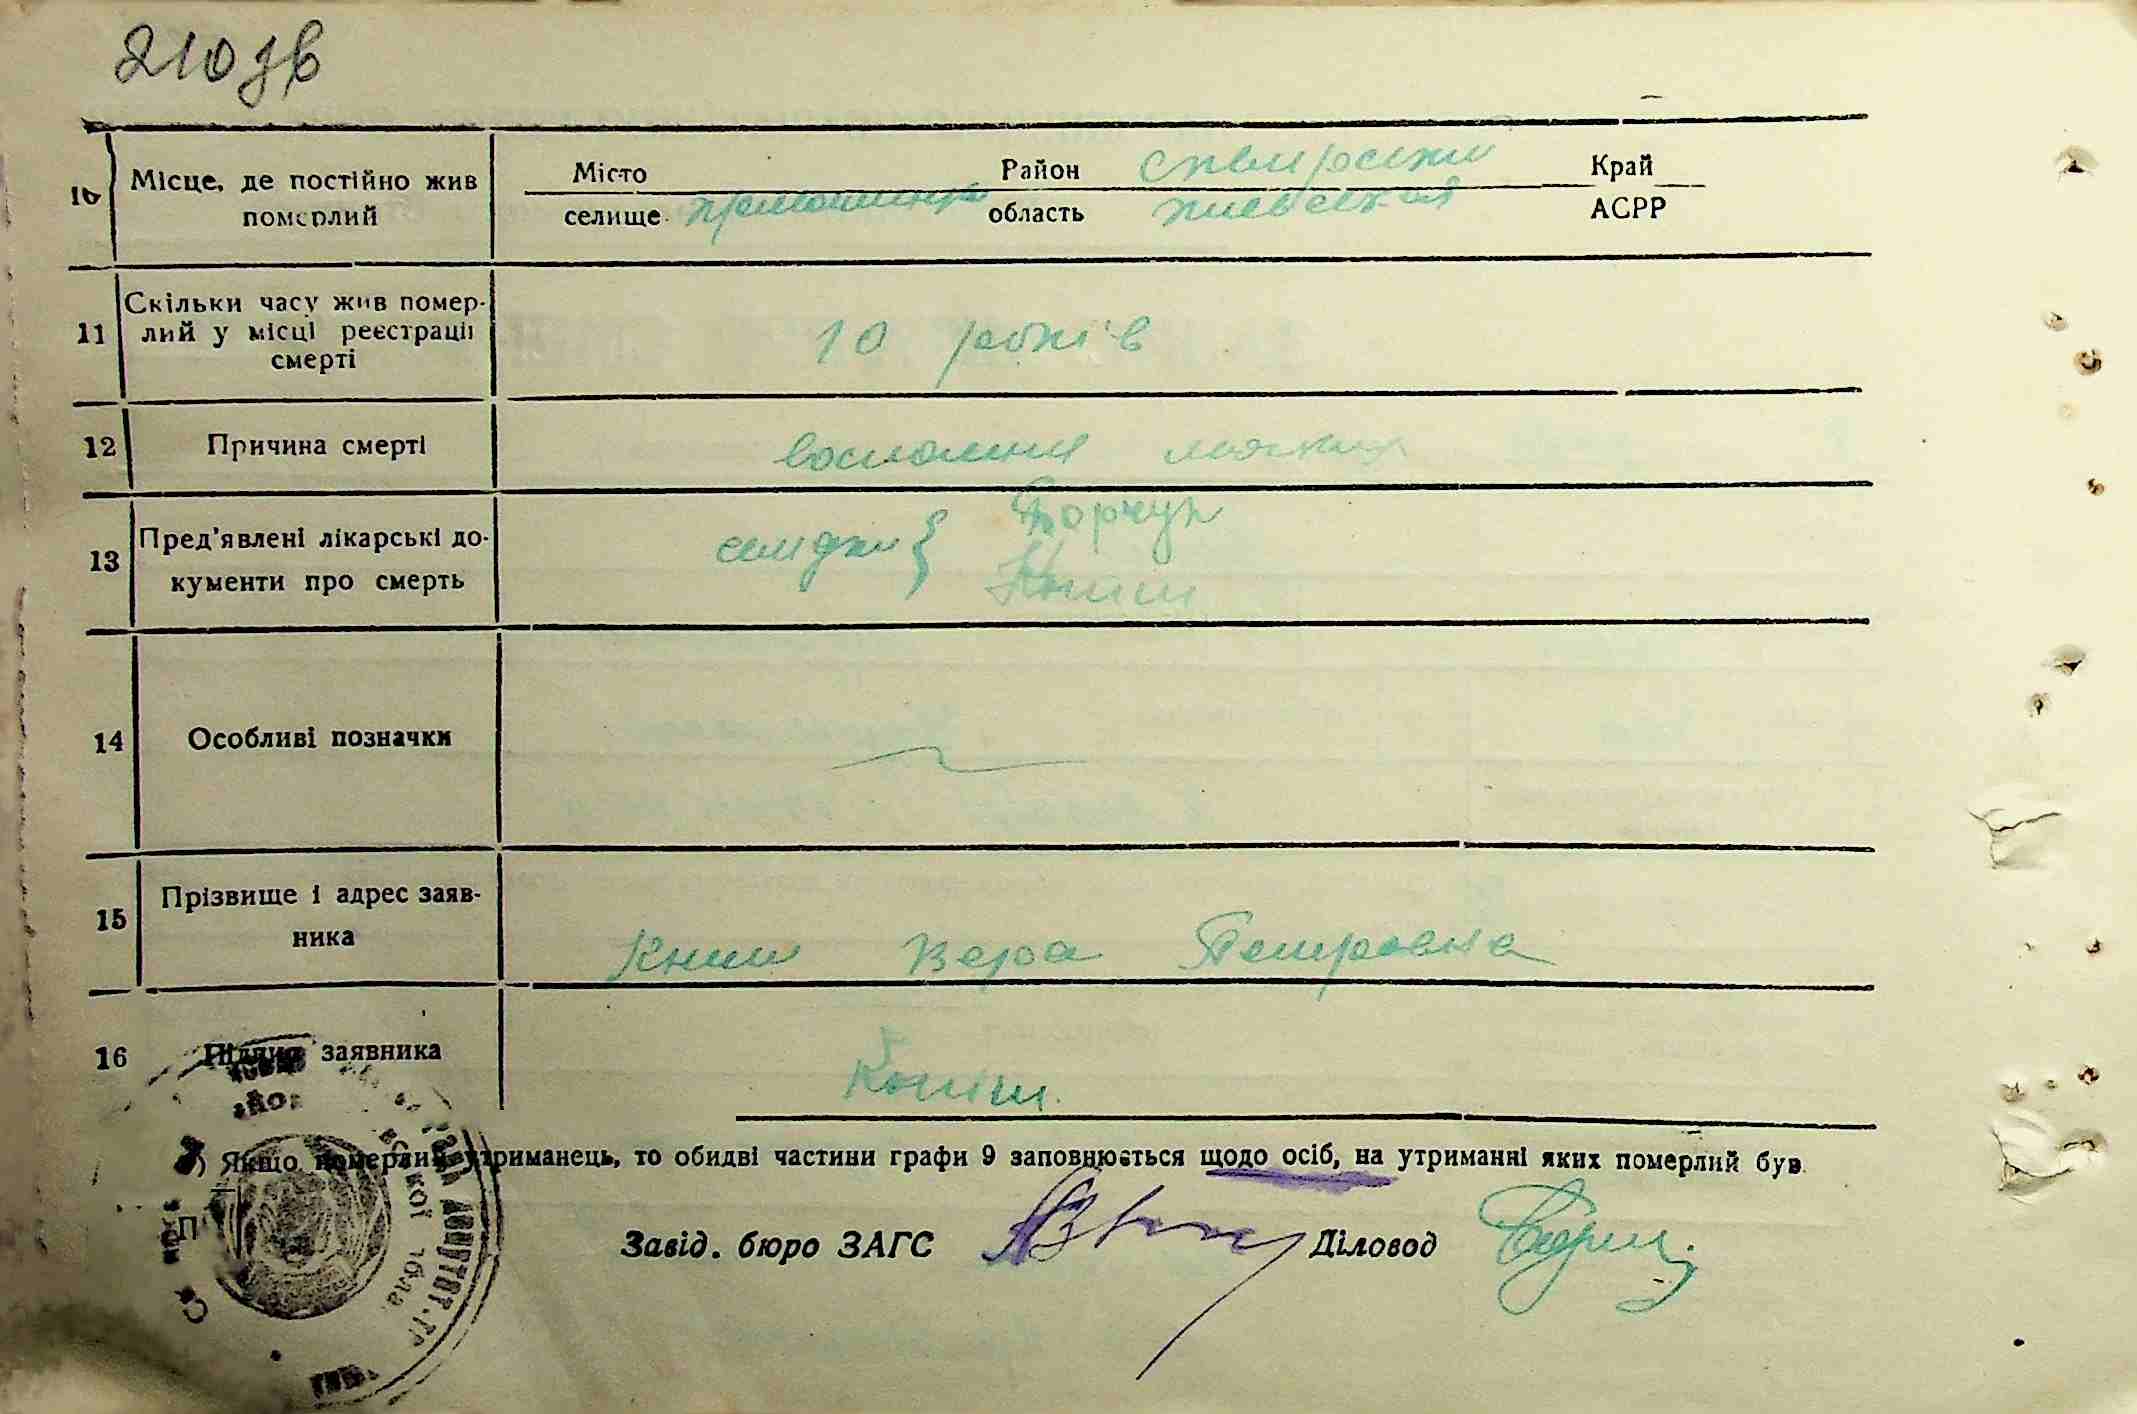 210 зв
10 Місце, де постійно жив
померлий
Місто Район Сквирский Край
селище область Киевская АСРР
11 Скільки часу жив помер-
лий у місці реєстрації
смерті
10 років
12 Причина смерті
воспаление легких
13 Пред'явлені лікарські до-
кументи про смерть
свидки } Борчук
Книш
14 Особливі позначки
15 Прізвище і адрес заяв-
ника
Книш Вера Петровна
16 Підпис заявника
Книш.
*) Якщо померлий утриманець, то обидві частини графи 9 заповнюється щодо осіб, на утриманні яких померлий був.
Завід. бюро ЗАГС Діловод